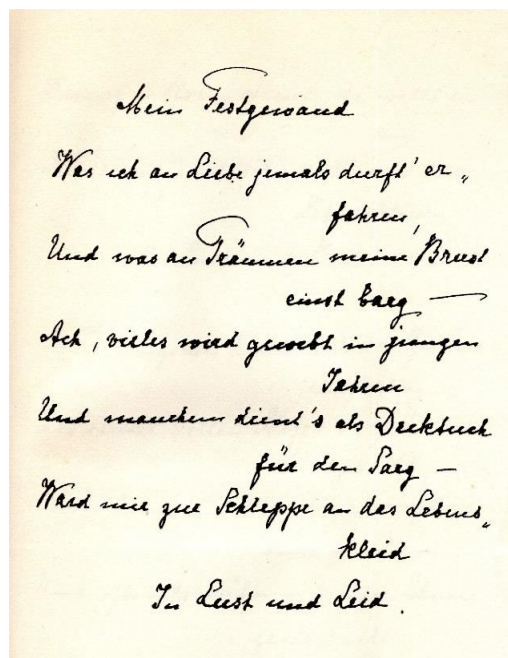 Mein Festgewand
Was ich an Liebe jemals durft' er„
fahren,
Und was an Träumen meine Brust
einst barg —
Ach, vieles wird gewebt in jungen
Jahren
Und manchem dient's als Decktuch
für den Sarg —
Ward mir zur Schleppe an das Lebens„
kleid
In Lust und Leid.